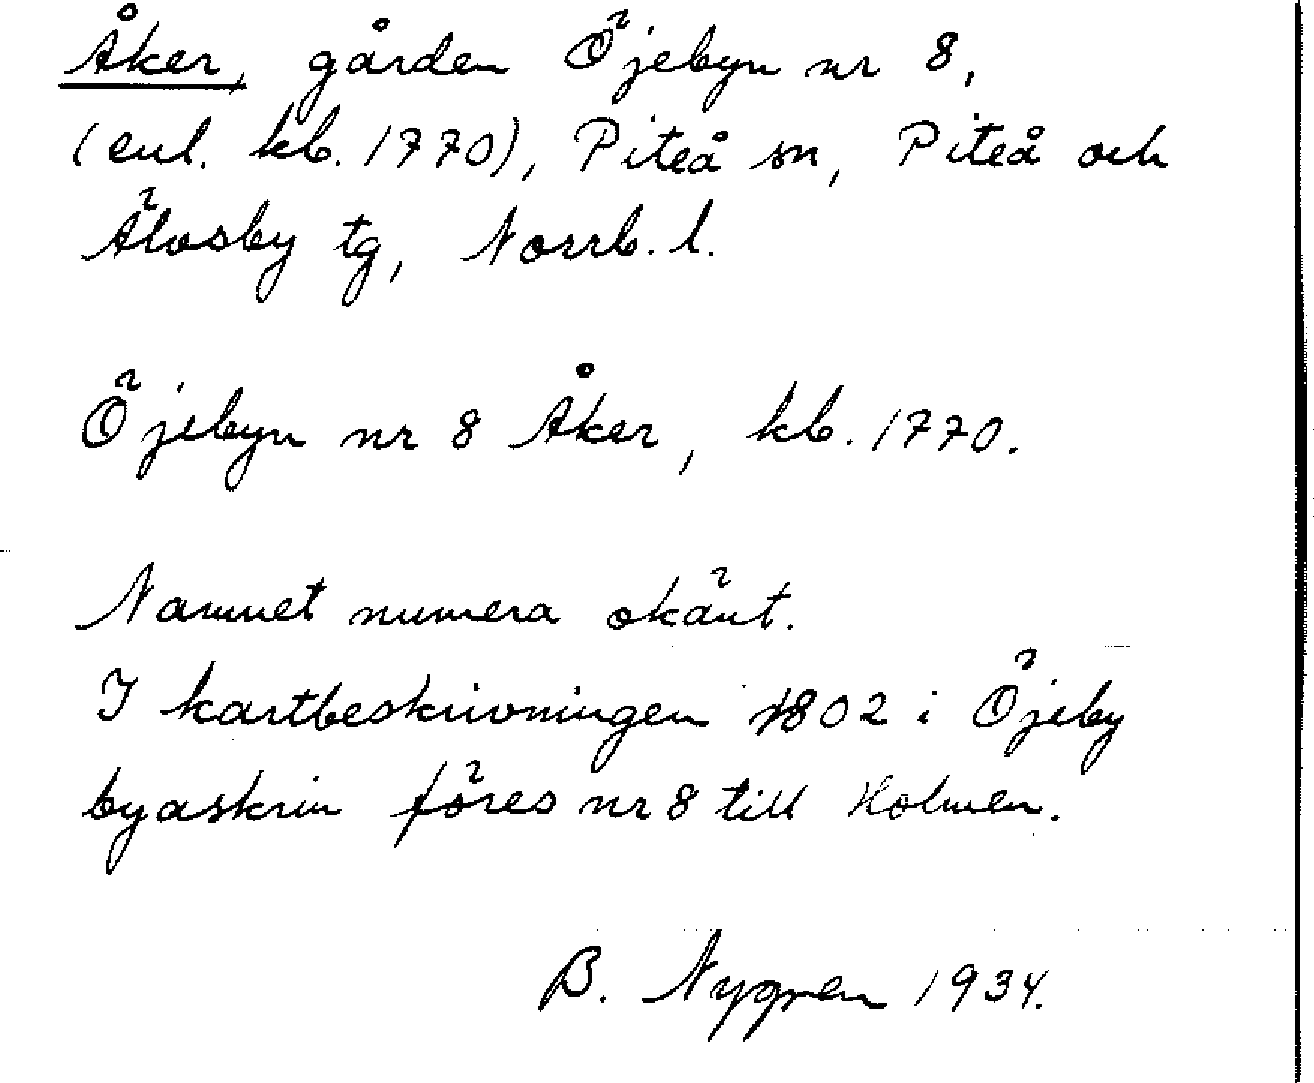 Åker, gården Öjebyn nr 8,
(enl. kb. 1770), Piteå sn, Piteå och
Älvsby tg, Norrb. l.
Öjebyn nr 8 Åker, kb. 1770.
Namnet numera okänt.
I kartbeskrivningen 1802 i Öjeby
byaskrin föres nr 8 till Holmen.
B. Nygren 1934.